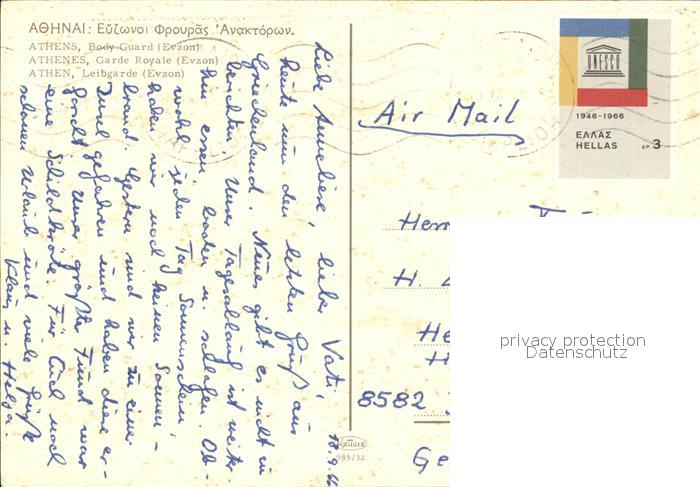 ΑΘΗΝΑΙ: Εὔζωνοι Φρουρᾶς Ἀνακτόρων.
ATHENS, Body Guard (Evzon)
ATHENES, Garde Royale (Evzon)
ATHEN, Leibgarde (Evzon)
18.9.66
Liebe Anneliese, lieber Vati,
heute nun den letzten Gruß aus
Griechenland. Neues gibt es nicht zu
berichten. Unser Tagesablauf ist weiter-
hin essen, baden u. schlafen. Ob-
wohl jeden Tag Sonnenschein,
haben wir noch keinen Sonnen-
brand. Gestern sind wir zu einer
Insel gefahren und haben diese er-
forscht. Unser größter Fund war
eine Schildkröte. Für Euch noch
schönen Urlaub und viele Grüße
Klaus u. Helga.
KRÜGER
985/32
UNESCO
1946-1966
ΕΛΛΑΣ
HELLAS
ΔΡ. 3
Air Mail
H.
8582
privacy protection
Datenschutz